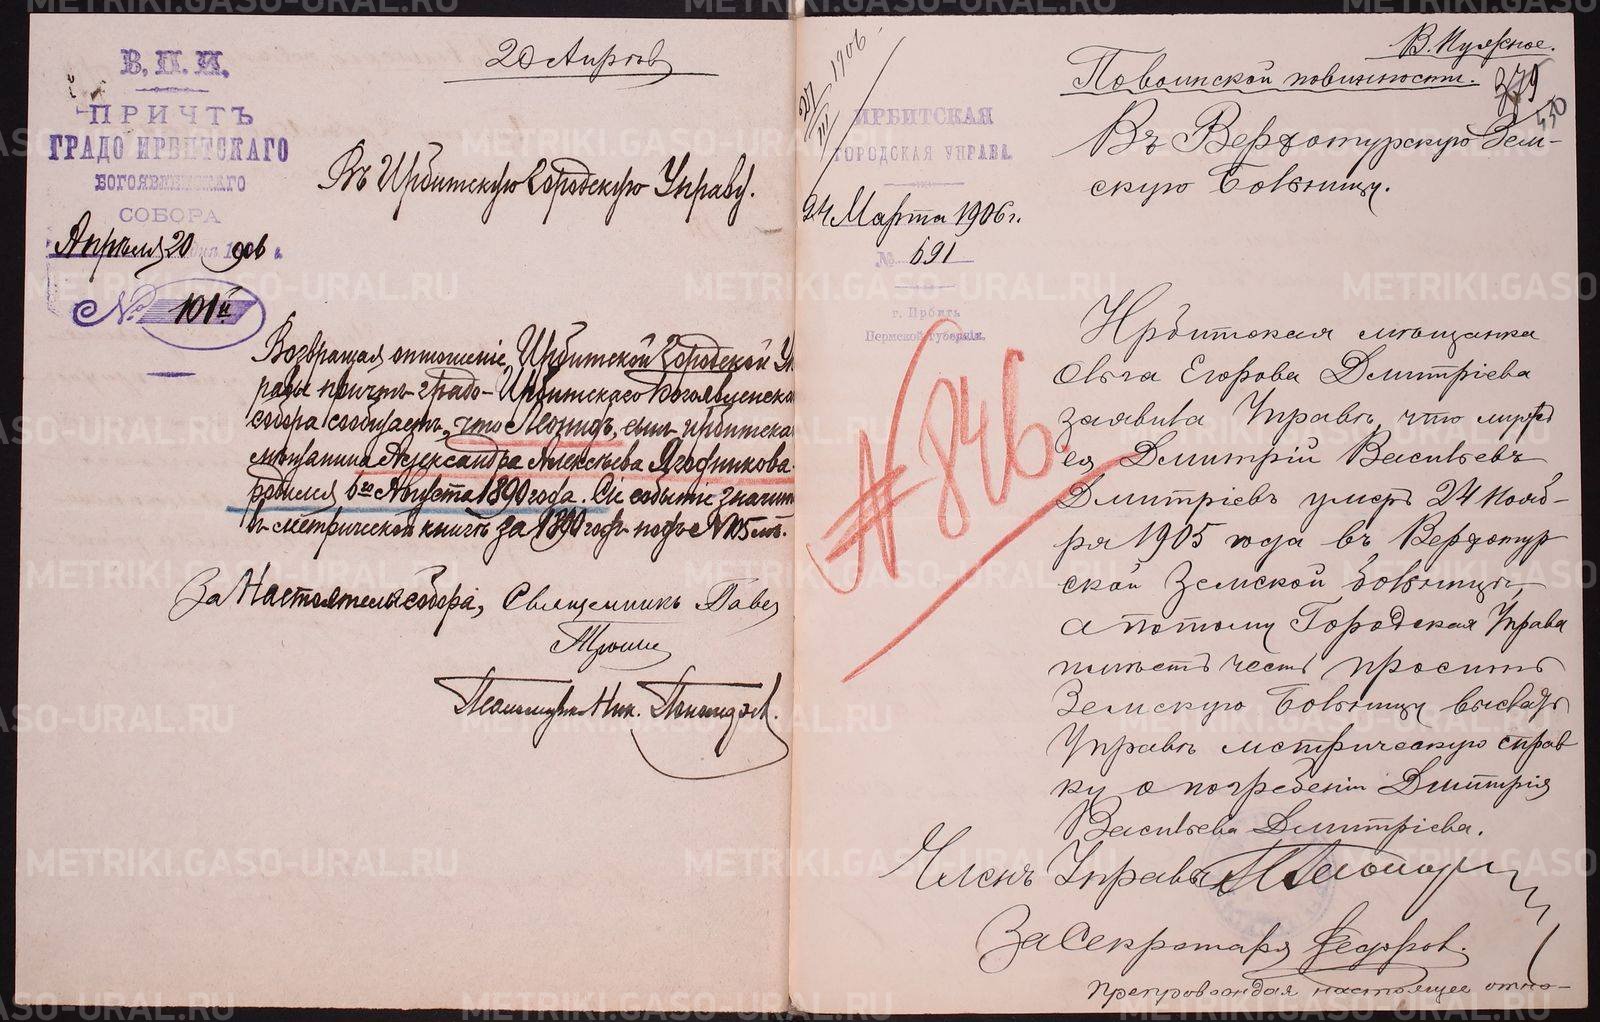 В. П. И.
ПРИЧТЪ
ГРАДО ИРБИТСКАГО
БОГОЯВЛЕНСКАГО
СОБОРА
Апрѣля 20 дня 1906 г.
№ 101й
20 Апрѣля
Въ Ирбитскую Городскую Управу.
Возвращая отношеніе Ирбитской Городской Уп
равы причтъ градо-Ирбитскаго Богоявленска
собора сообщаетъ, что Леонидъ, сынъ ирбитска
мѣщанина Александра Алексѣева Ягодникова
родился 6го Августа 1890 года. Сіе событіе значит
въ метрической книгѣ за 1890 годъ подъ № 105мъ.
За Настоятеля собора, Священникъ Павел
Псаломщикъ Ник.
27/III 1906
ИРБИТСКАЯ
ГОРОДСКАЯ УПРАВА.
24 Марта 1906 г.
№ 691
г. Ирбить
Пермской губерніи.
№ 846
В. Нужное.
По воинской повинности.
379
530
Въ Верхотурскую Зем-
скую Больницу.
Ирбитская мѣщанка
Ольга Егорова Дмитріева
заявила Управѣ, что мужъ
ея Дмитрій Васильевъ
Дмитріевъ умеръ 24 Нояб-
ря 1905 года въ Верхотур
ской Земской больницѣ,
а потому Городская Управа
имѣетъ честь просить
Земскую Больницу выслать
Управѣ метрическую справ
ку о погребеніи Дмитрія
Васильева Дмитріева.
Членъ Управы
За Секретаря Федоров.
Препровождая настоящее отно-
METRIKI.GASO-URAL.RU